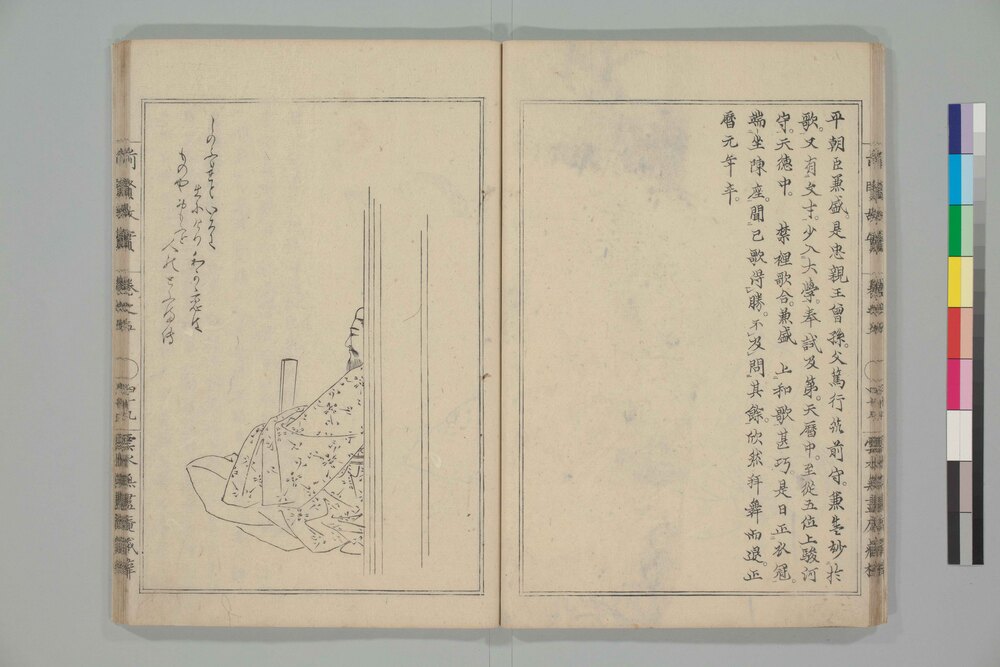 平朝臣兼盛。是忠親王曾孫。父篤行筑前守。兼盛妙於
歌。又有文才。少入大學。奉試及第。天曆中。至從五位上駿河
守。天德中。 禁裡歌合。兼盛 上和歌甚巧。是日正衣冠。
端坐陳座。聞己歌得勝。不及問其餘。欣然拜舞而退。正
曆元年卒。
しのふれといろに
出にけりわか恋は
ものやおもふと
人のとふまて